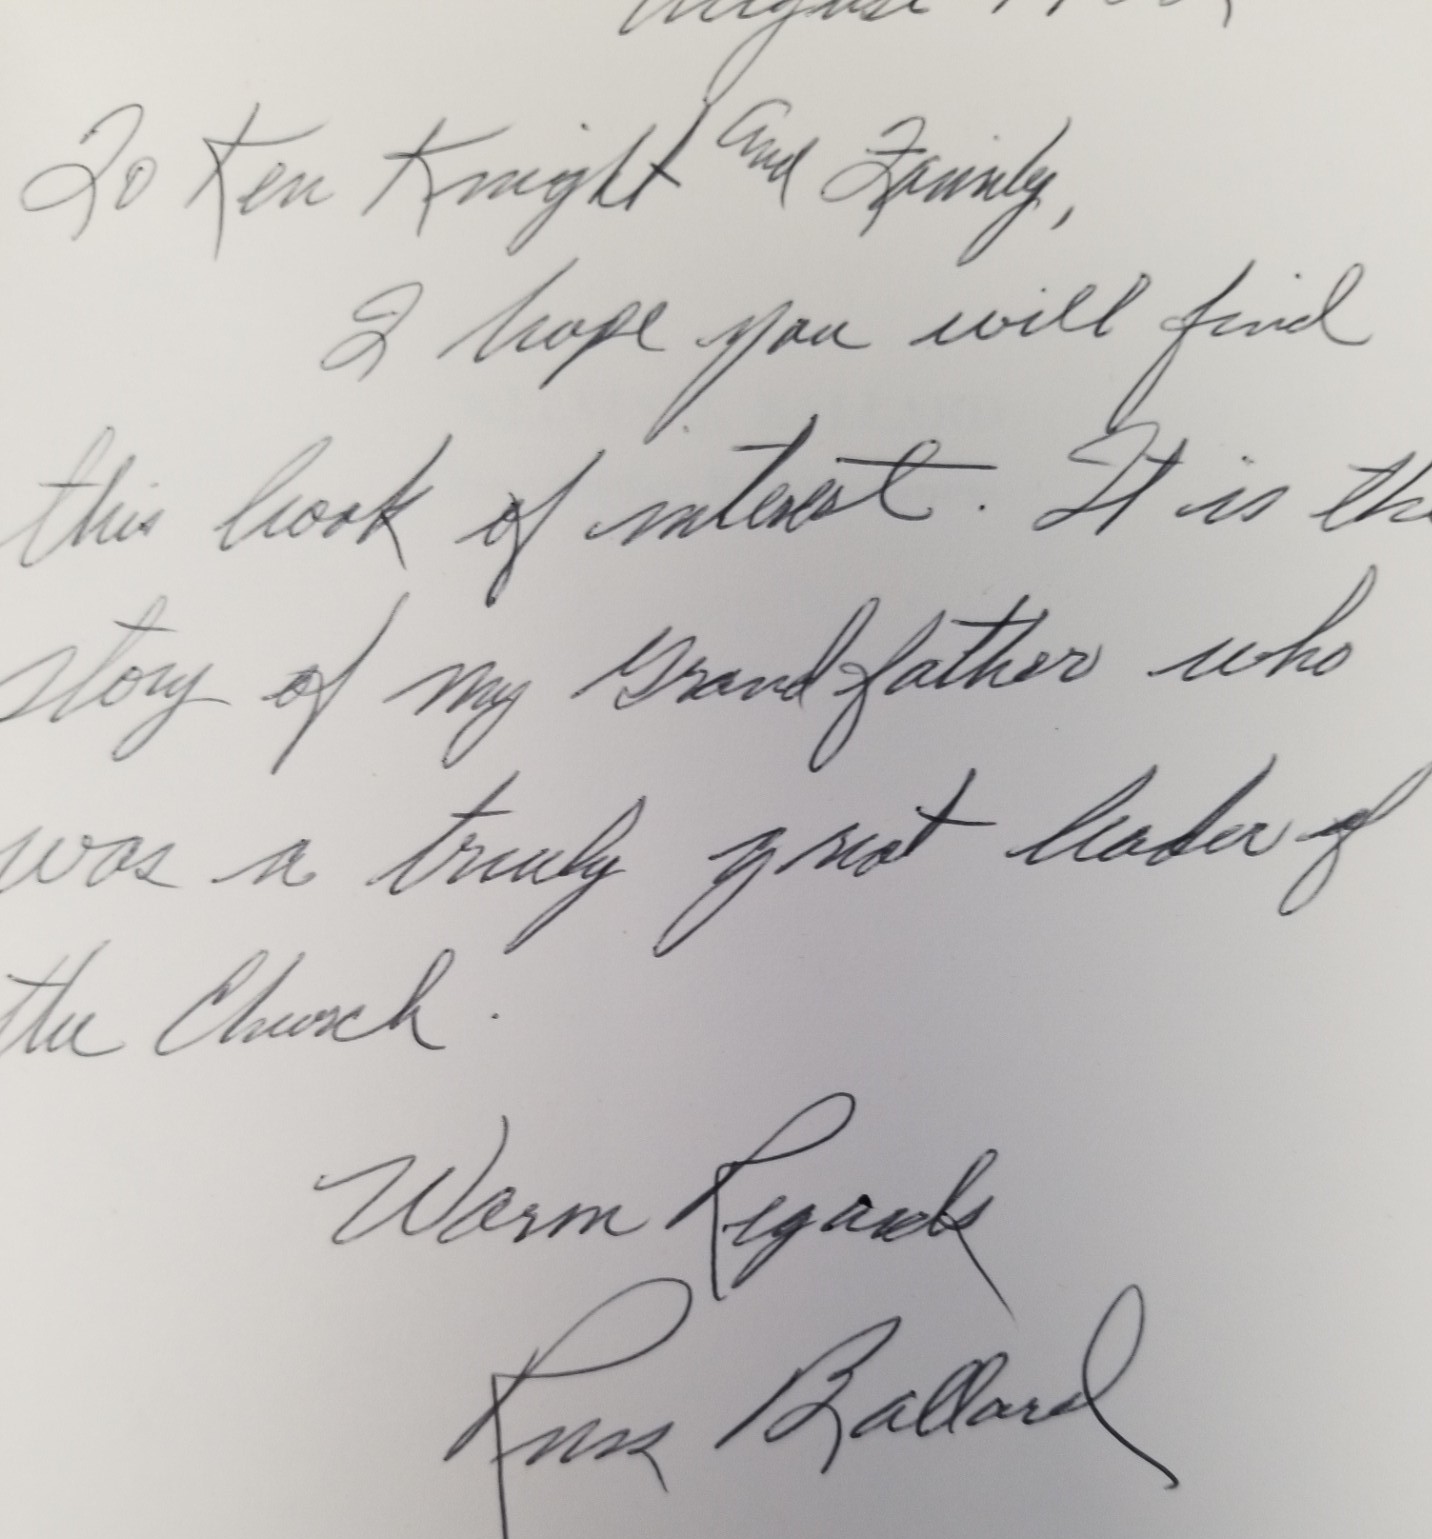 August
To Ken Knight and Family,
I hope you will find
this book of interest. It is the
story of my Grandfather who
was a truly great leader of
the Church.
Warm Regards
Russ Ballard